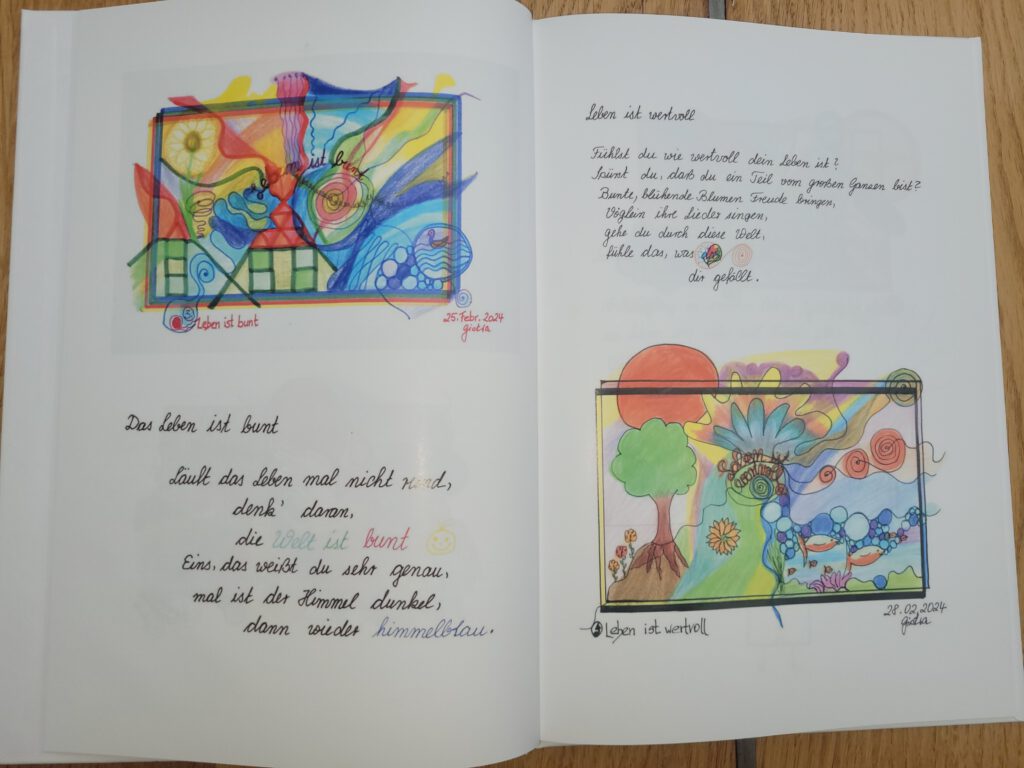 Leben ist bunt
Leben ist bunt
25. Febr. 2024
Das Leben ist bunt
Läuft das Leben mal nicht rund,
denk' daran,
die Welt ist bunt
Eins, das weißt du sehr genau,
mal ist der Himmel dunkel,
dann wieder himmelblau.
Leben ist wertvoll
Fühlst du wie wertvoll dein Leben ist?
Spürst du, daß du ein Teil vom großen Ganzen bist?
Bunte, blühende Blumen Freude bringen,
Vöglein ihre Lieder singen,
gehe du durch diese Welt,
fühle das, was
dir gefällt.
Leben ist wertvoll
Leben ist wertvoll
28.02.2024